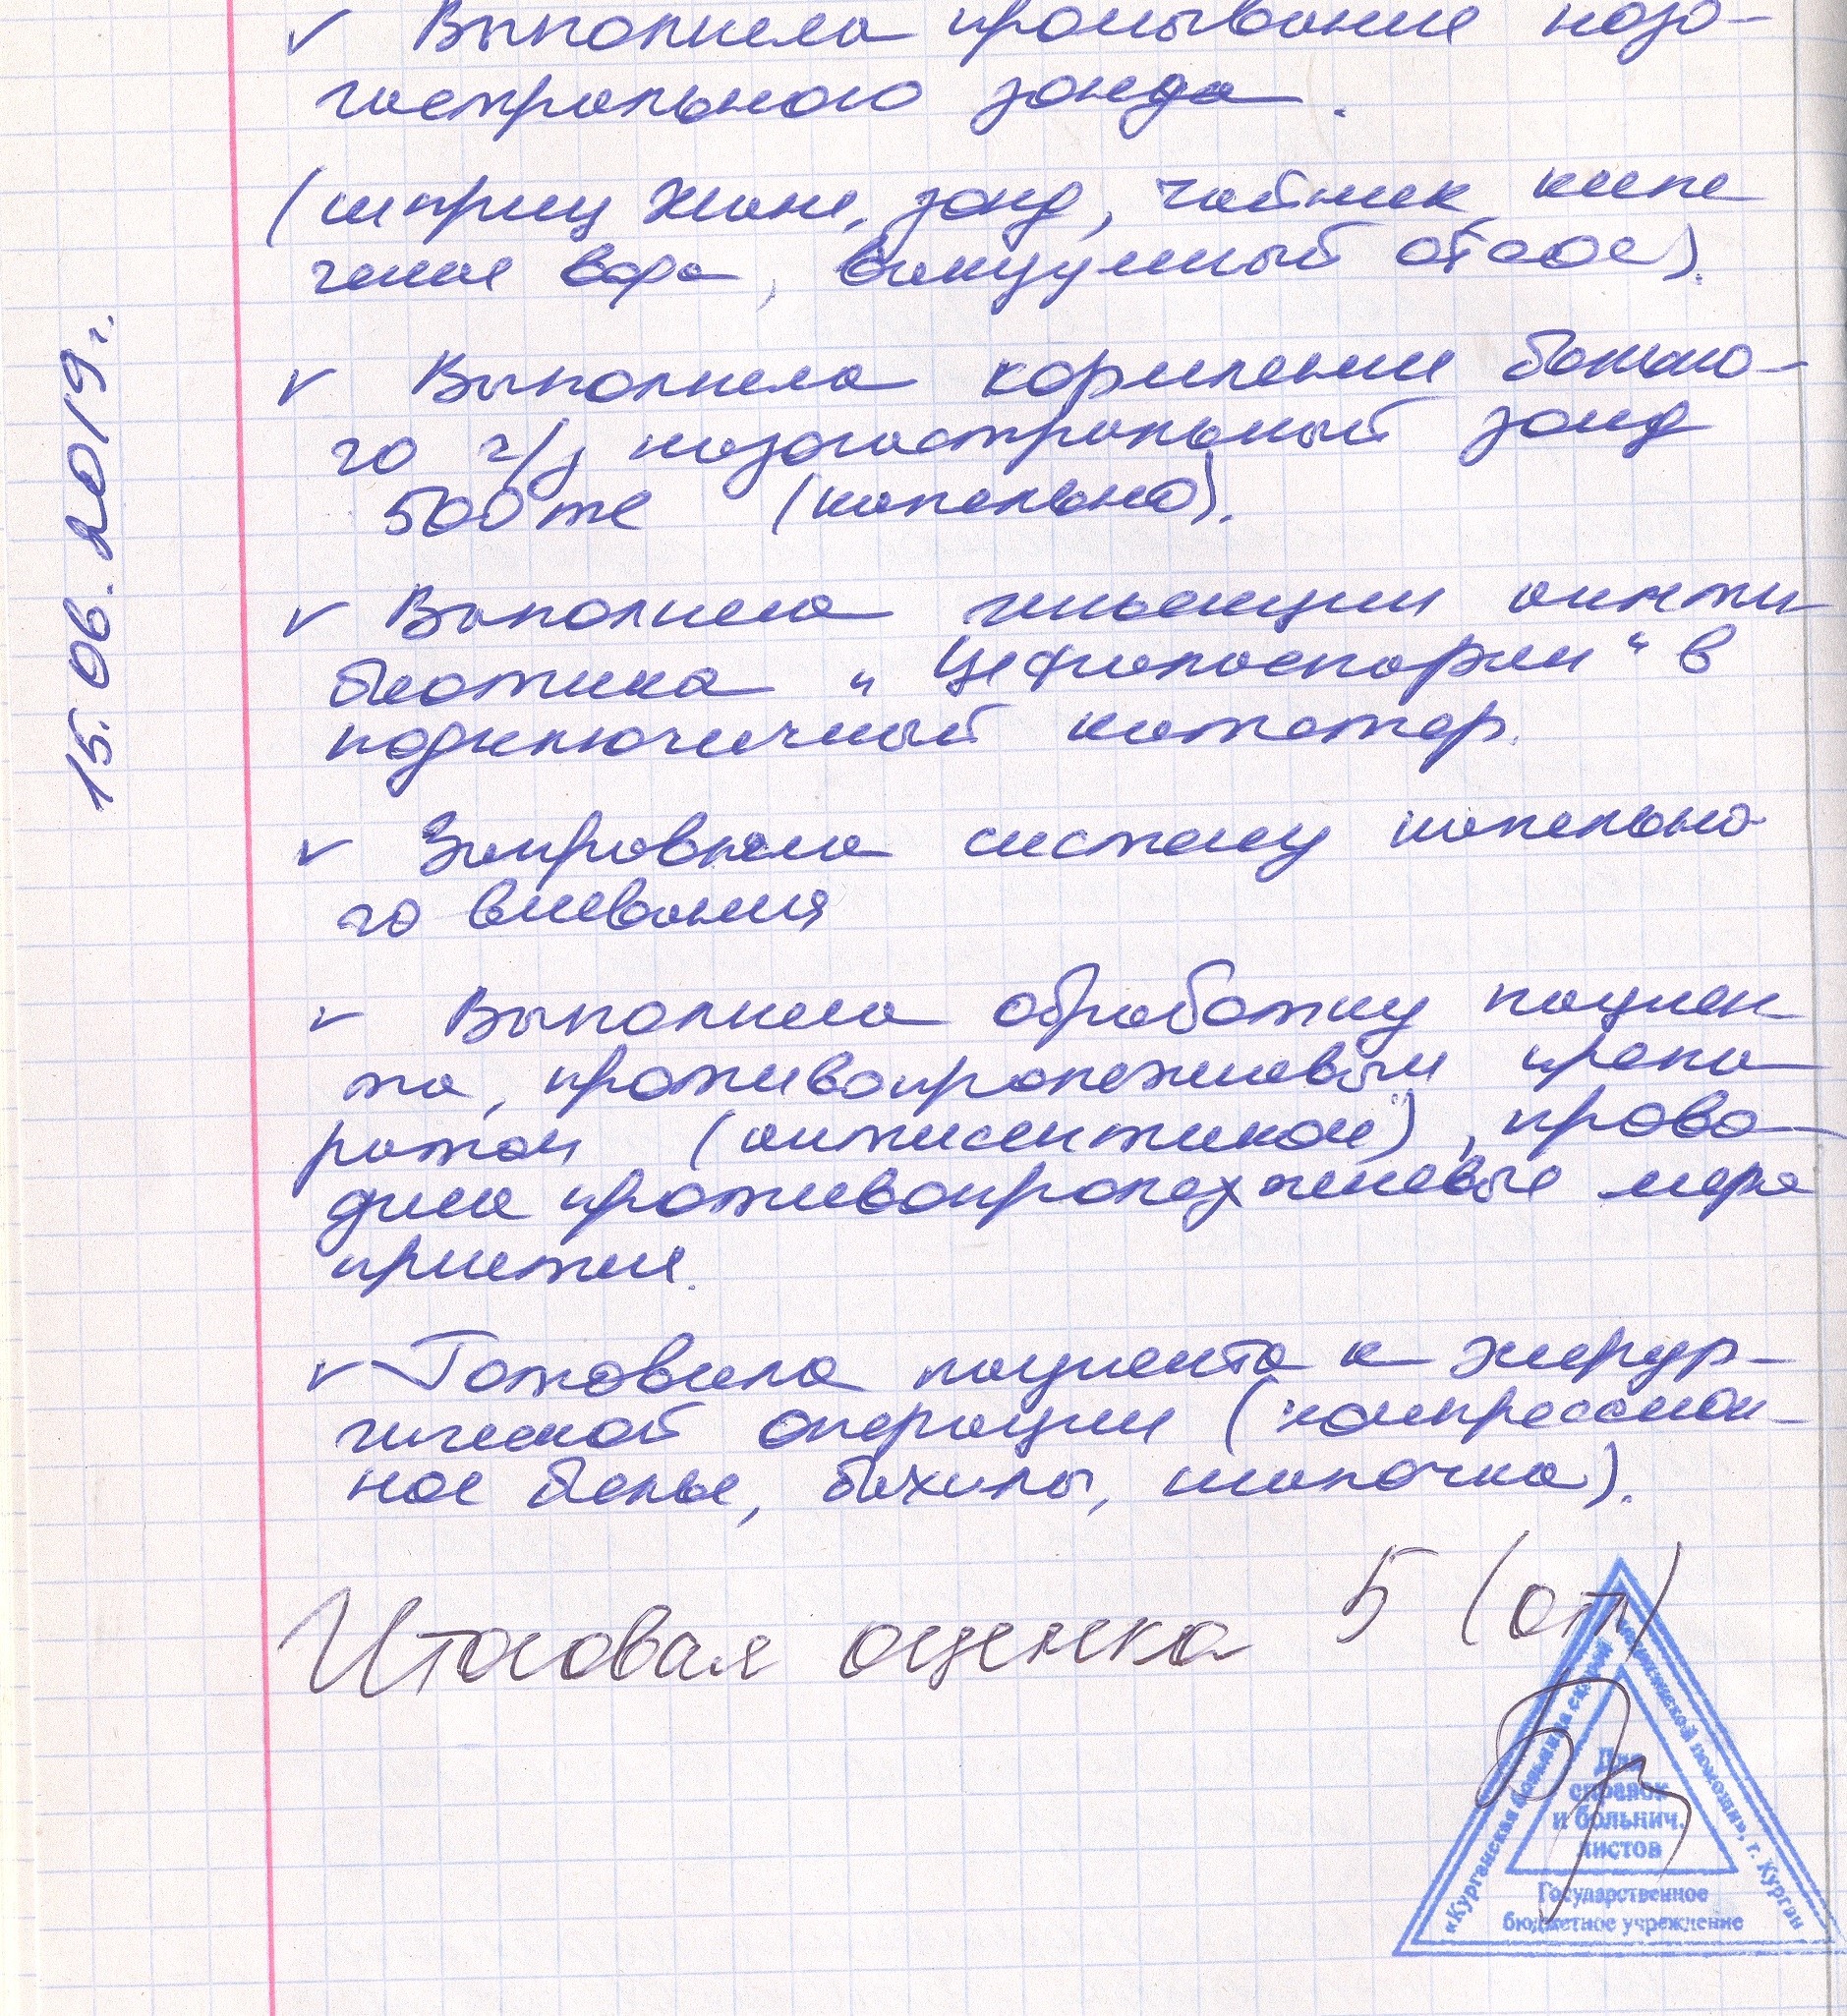 ✓ Выполнила промывание назо-
гастрального зонда.
(шприц Жане, зонд, чайник, кипе
ченая вода, вакуумный отсос).
✓ Выполнила кормлении больно-
го ч/з назогастральный зонд
500 мл (капельно).
✓ Выполнила инъекции анти
биотика „Цефилоспорин“ в
подключичный катетер.
✓ Заправляла систему капельно
го вливания
✓ Выполнила обработку пациен
та, противопролежневым препа
ратом (антисептиком), прово-
дила противопролежневые меро
приятия.
✓ Готовила пациента к хирур-
гической операции (компрессион-
ное белье, бахилы, шапочка).
15.06.2019г.
Итоговая оценка 5 (отл)
«Курганская больница скорой медицинской помощи», г. Курган
Для
справок
и больнич.
листов
Государственное
бюджетное учреждение